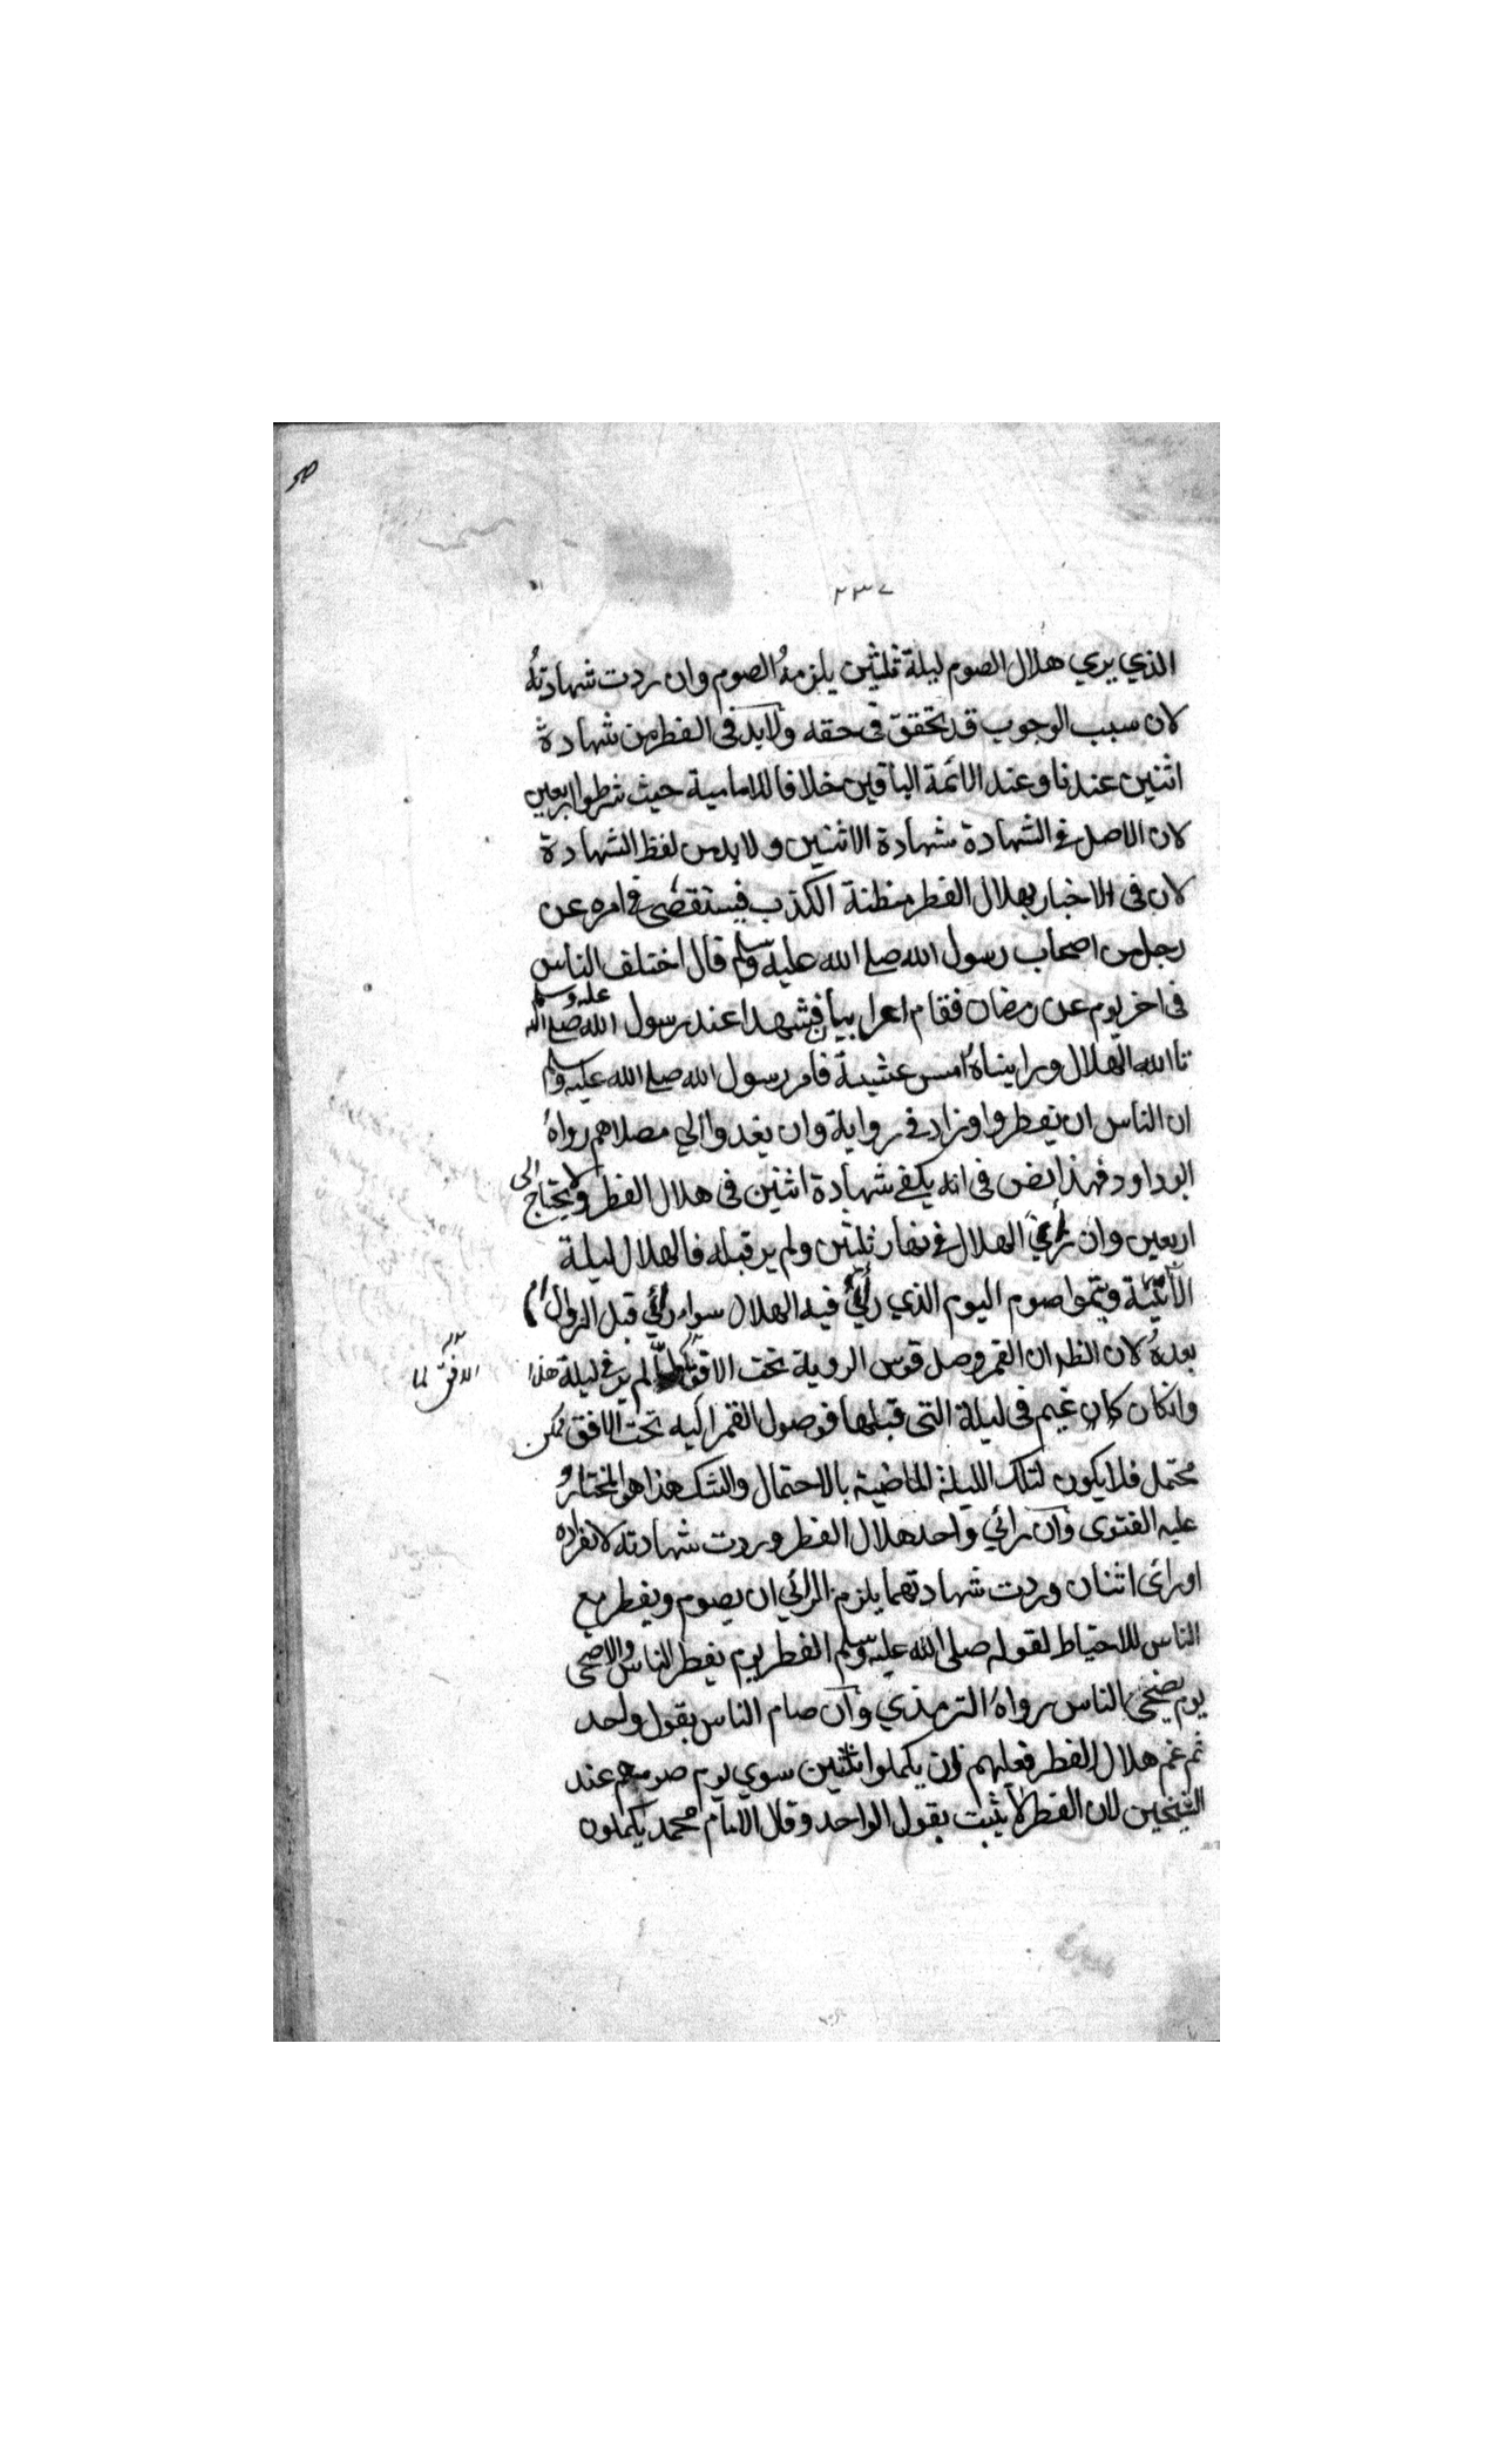 ٢٣٧
الذي يري هلال الصوم ليلة ثلثين يلزمهُ الصوم وان ردت شهادتهُ
لان سبب الوجوب قد تحقق فى حقه ولابد فى الفطر من شهادة
اثنين عندنا وعند الائمة الباقين خلافا للامامية حيث شرطوا اربعين
لان الاصل فى الشهادة شهادة الاثنين ولا بد من لفظ الشهادة
لان فى الاخبار بهلال الفطر مظنة الكذب فيستقصى فى امره عن
رجل من اصحاب رسول الله صلى الله عليه وسلم قال اختلف الناس
فى اخر يوم عن رمضان فقام اعرابيان فشهدا عند رسول الله صلى الله عليه وسلم
تالله الهلال ورايناهُ امس عشية فامر رسول الله صلى الله عليه وسلم
ان الناس ان يفطروا وزاد فى رواية وان يغدوا الي مصلاهم رواهُ
ابوداود فهذا نص فى انه يكفى شهادة اثنين فى هلال الفطر ولا يحتاج الى
اربعين وان رأي الهلال فى نهار ثلثين ولم ير قبله فالهلال ليلة
الآتية ويتموا صوم اليوم الذي رأي فيه الهلال سواء رأي قبل الزوال او
بعدهُ لان الظ ان القمر وصل قوس الروية تحت الافق لم ير فى ليلة هذا
الافق لما
وانكان كان غيم فى ليلة التى قبلها فوصول القمر اليه تحت الافق ممكن
محتمل فلا يكون لتلك الليلة الماضية بالاحتمال والشك هذا هو المختار و
عليه الفتوى وان رائي واحد هلال الفطر وردت شهادته لانفراده
او رائ اثنان وردت شهادتهما يلزم الرائي ان يصوم ويفطر مع
الناس للاحتياط لقوله صلى الله عليه وسلم الفطر يوم يفطر الناس والاضحى
يوم يضحى الناس رواهُ الترمذي وان صام الناس بقول واحد
ثم غم هلال الفطر فعليهم ان يكملوا ثلثين سوي يوم صومهم عند
الشيخين لان الفطر لا يثبت بقول الواحد وقال الامام محمد يكملون